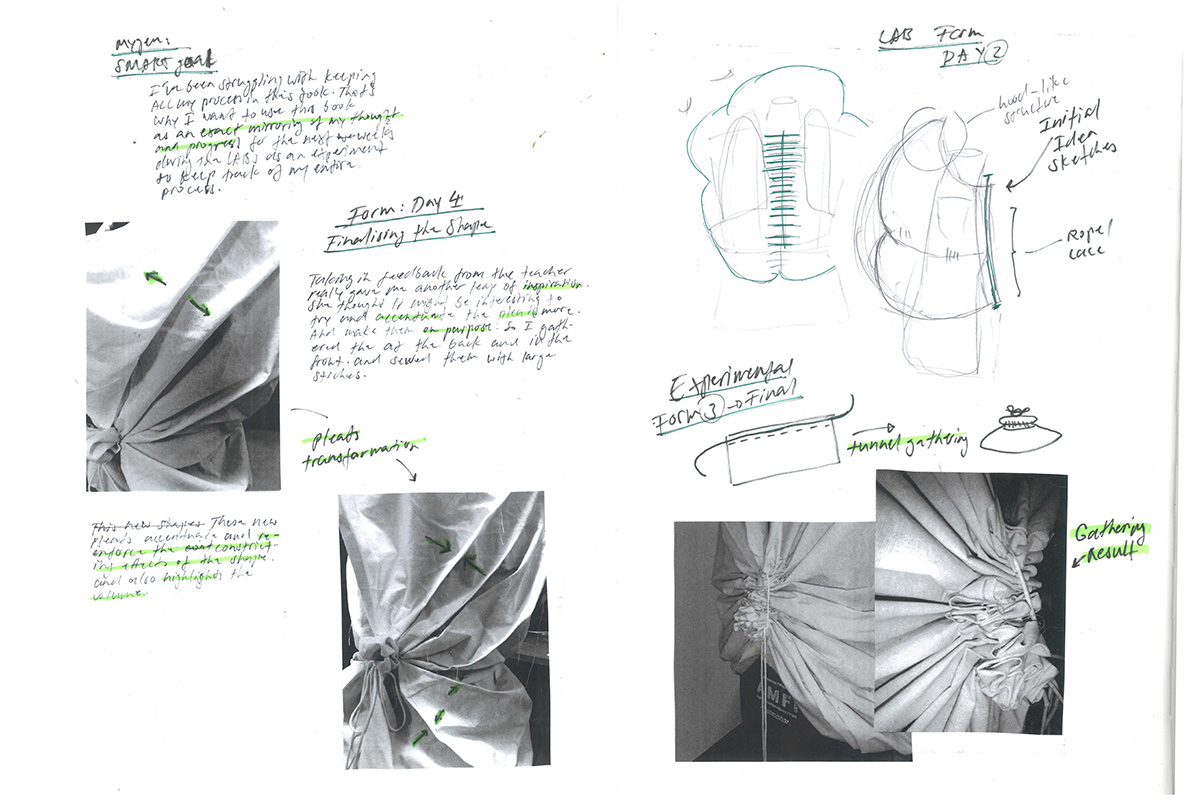 SMART goal
I've been struggling with keeping
ALL my process in this book. That's
why I want to use this book
as an exact mirroring of my thought
and progress for the next weeks
during the LABs as an experiment
to keep track of my entire
process.
Form: Day 4
Finalising the Shape
Taking in feedback from the teacher
really gave me another leap of inspiration.
She thought it might be interesting to
try and accentuate the pleats more.
And make them on purpose. So I gath-
ered the at the back and in the
front. and sewed them with large
stiches.
pleats
transformation
This new shapes These new
pleads accentuate and re-
enforce the constrict-
ing effects of the shape.
and also highlights the
volume.
LAB Form
DAY 2
hood-like
structure
Initial
Idea
sketches
Rope/
lace
Experimental
Form 3 → Final
tunnel gathering
AMFI
Gathering
Result